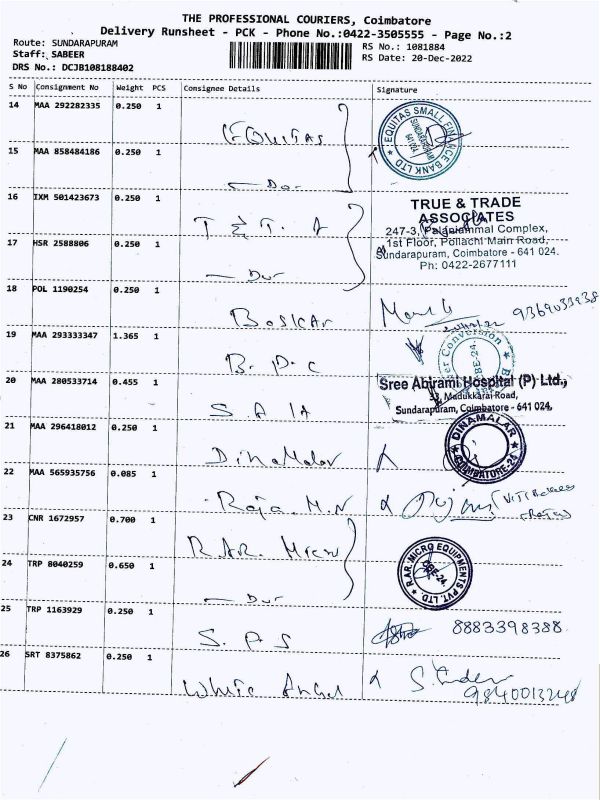 THE PROFESSIONAL COURIERS, Coimbatore
Delivery Runsheet - PCK - Phone No.:0422-3505555 - Page No.:2
Route: SUNDARAPURAM
Staff: SABEER
DRS No.: DCJB108188402
RS No.: 1081884
RS Date: 20-Dec-2022
S No Consignment No Weight PCS Consignee Details Signature
14 MAA 292282335 0.250 1 EQUITAS
EQUITAS SMALL FINANCE BANK LTD
SUNDARAPURAM
641024
15 MAA 858484186 0.250 1 Do
16 IXM 501423673 0.250 1 T & T. A
TRUE & TRADE
ASSOCIATES
247-3, Palaniammal Complex,
1st Floor, Pollachi Main Road,
Sundarapuram, Coimbatore - 641 024.
Ph: 0422-2677111
17 HSR 2588806 0.250 1
18 POL 1190254 0.250 1 Boskar
19 MAA 293333347 1.365 1 B. P. C
20 MAA 280533714 0.455 1
Sree Abirami Hospital (P) Ltd.,
33, Madukkarai Road,
Sundarapuram, Coimbatore - 641 024.
21 MAA 296418012 0.250 1 Dinamalar
DINAMALAR
COIMBATORE-24
22 MAA 565935756 0.085 1 Raja. M. N
23 CNR 1672957 0.700 1 R.A.R. Micro
R.AR. MICRO EQUIPMENTS PVT. LTD
CBE-24.
24 TRP 8040259 0.650 1
25 TRP 1163929 0.250 1 S. A S 8883398388
26 SRT 8375862 0.250 1 White Angel